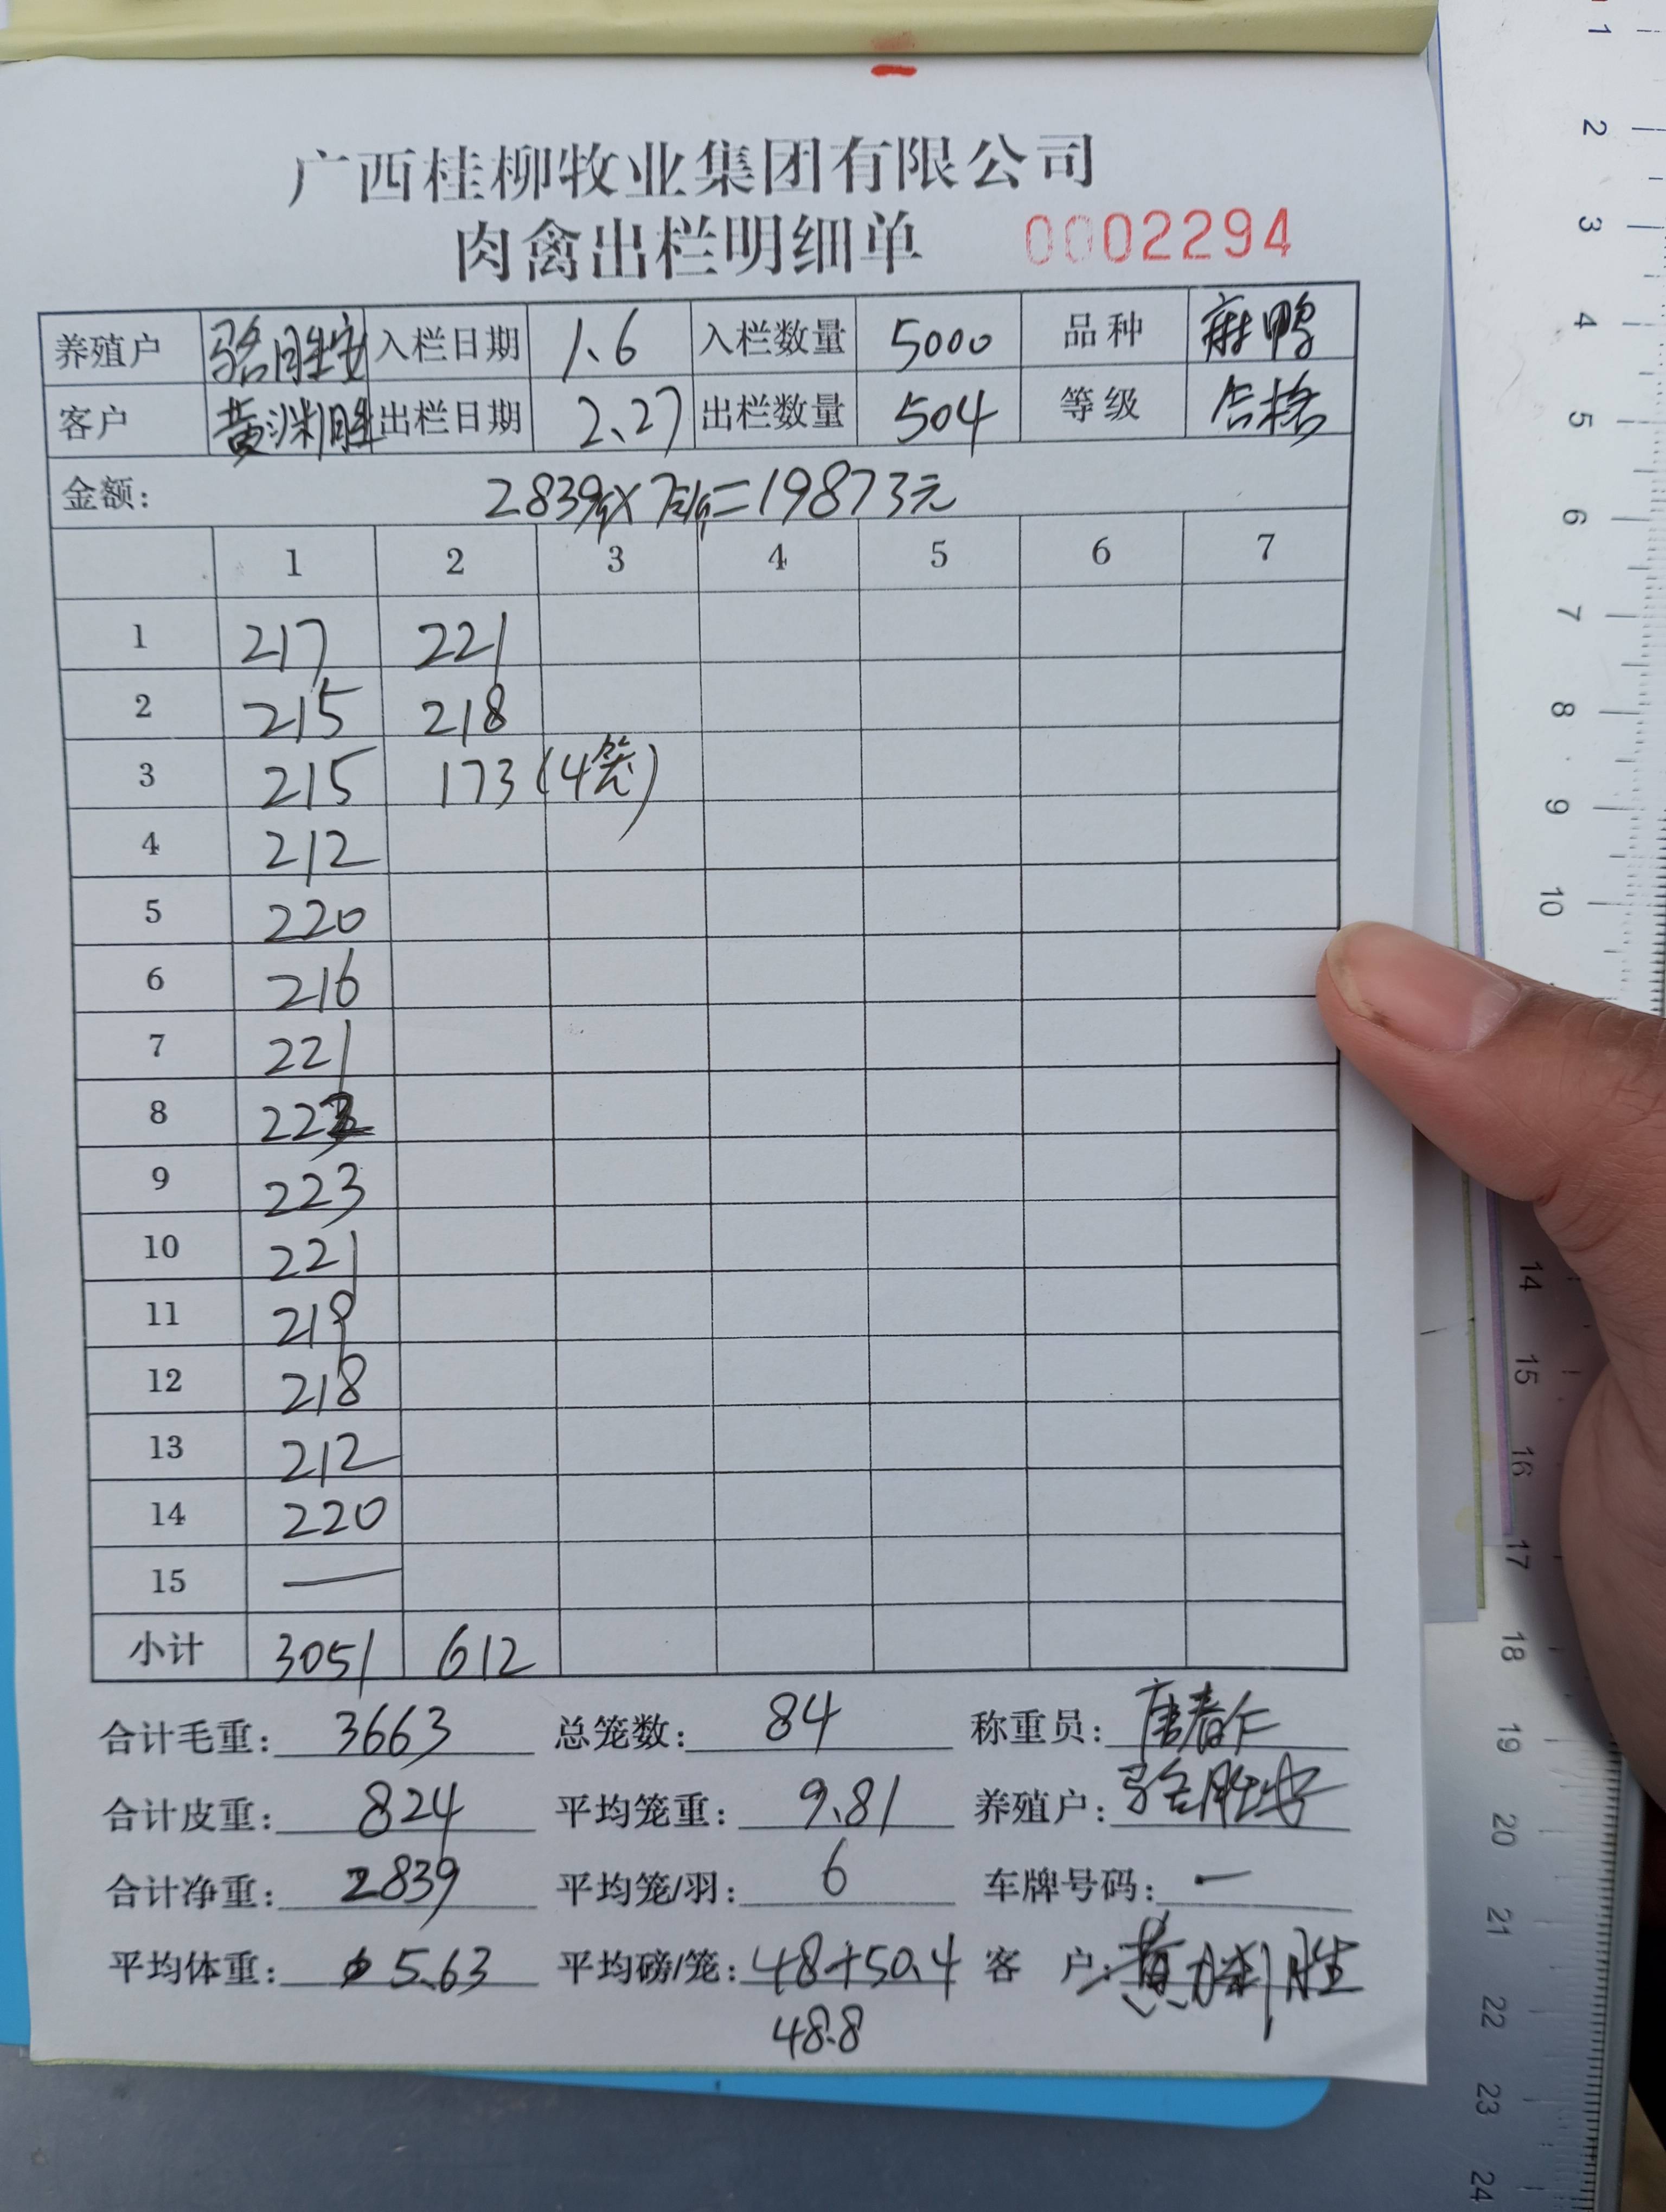 广西桂柳牧业集团有限公司
肉禽出栏明细单 0002294
养殖户 骆胜安 入栏日期 1.6 入栏数量 5000 品种 麻鸭
客户 出栏日期 2.27 出栏数量 504 等级 合格
金额: 2839斤×7元/斤=19873元
1 2 3 4 5 6 7
1 217 221
2 215 218
3 215 173 (4笼)
4 212
5 220
6 216
7 221
8 222
9 223
10 221
11 219
12 218
13 212
14 220
15 —
小计 3051 612
合计毛重: 3663 总笼数: 84 称重员: 唐春仁
合计皮重: 824 平均笼重: 9.81 养殖户: 骆胜安
合计净重: 2839 平均笼/羽: 6 车牌号码: —
平均体重: 5.63 平均磅/笼: 48+50.4 客 户:
48.8
1
2
3
4
5
6
7
8
9
10
14
15
16
17
18
19
20
21
22
23
24